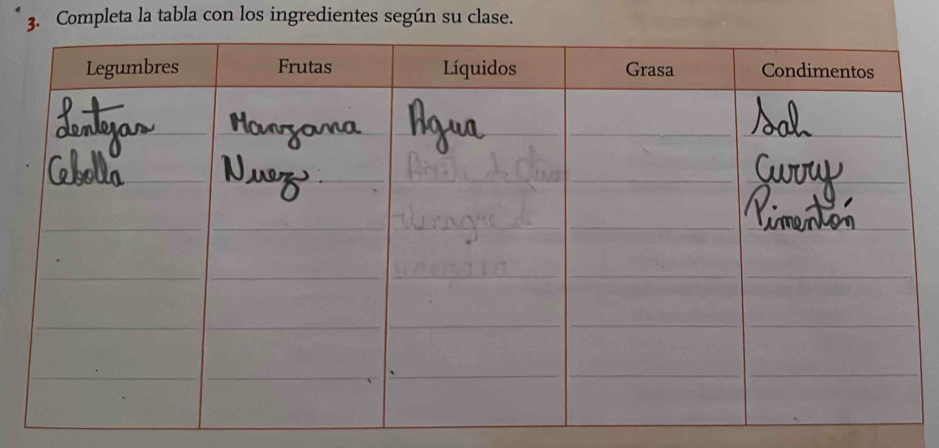 3. Completa la tabla con los ingredientes según su clase.
Legumbres Frutas Líquidos Grasa Condimentos
Lentejas Manzana Agua Sal
Cebolla Nuez Curry
Pimentón